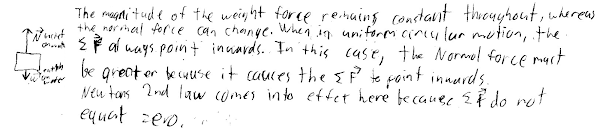 The magnitude of the weight force remains constant throughout, whereas
the normal force can change. When in uniform circular motion, the
ΣF⃗ always point inwards. In this case, the Normal force must
be greater because it causes the ΣF⃗ to point inwards.
Newtons 2nd law comes into effect here because ΣF⃗ do not
equal zero.
N⃗
W⃗